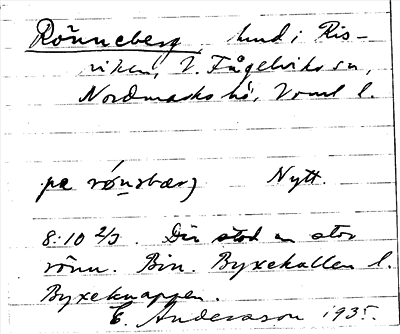 Rönneberg, hmd i Ris-
viken, V. Fågelviks sn,
Nordmarks hd, Vrml l.
pɑ rǿnsbærj Nytt.
8:10 2/3. Där stod en stor
rönn. Bin. Byxekullen l.
Byxeknappen.
E. Andersson 1935.